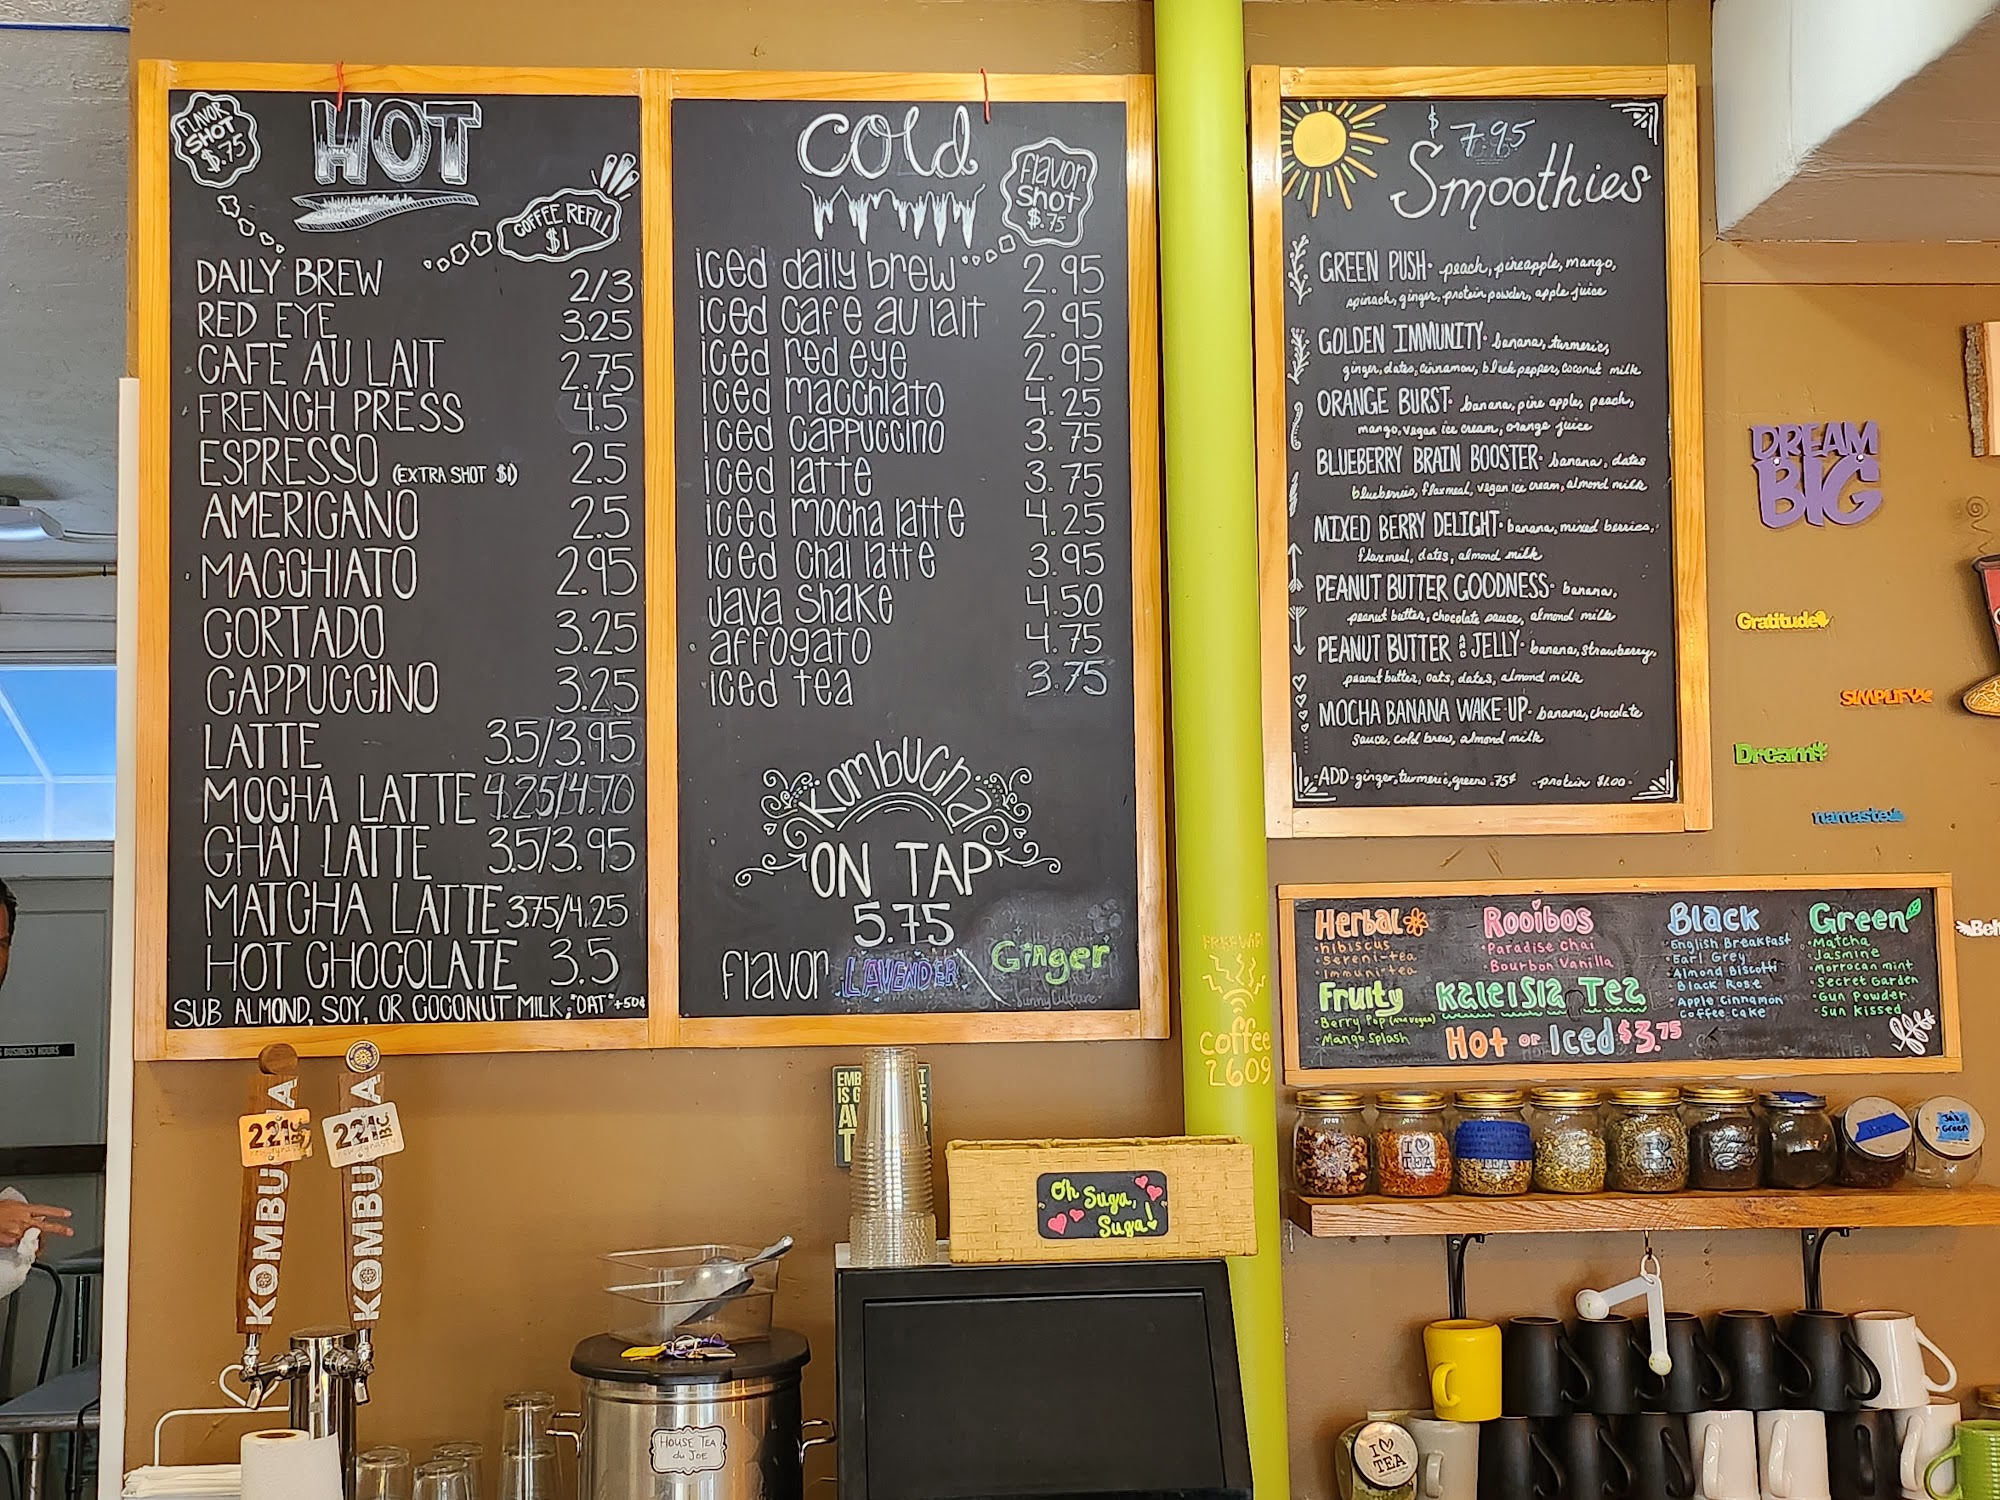 FLAVOR
SHOT
$.75
HOT
COFFEE REFILL
$1
DAILY BREW 2/3
RED EYE 3.25
CAFE AU LAIT 2.75
FRENCH PRESS 4.5
ESPRESSO (EXTRA SHOT $1) 2.5
AMERICANO 2.5
MACCHIATO 2.95
CORTADO 3.25
CAPPUCCINO 3.25
LATTE 3.5/3.95
MOCHA LATTE 4.25/4.70
CHAI LATTE 3.5/3.95
MATCHA LATTE 3.75/4.25
HOT CHOCOLATE 3.5
SUB ALMOND, SOY, OR COCONUT MILK, "OAT" +50¢
Cold
Flavor
Shot
$.75
iced daily brew 2.95
iced cafe au lait 2.95
iced red eye 2.95
iced macchiato 4.25
iced cappuccino 3.75
iced latte 3.75
iced mocha latte 4.25
iced chai latte 3.95
Java Shake 4.50
affogato 4.75
iced tea 3.75
Kombucha
ON TAP
5.75
flavor LAVENDER \ Ginger
Sunny Culture
$ 7.95
Smoothies
GREEN PUSH· peach, pineapple, mango,
spinach, ginger, protein powder, apple juice
GOLDEN IMMUNITY· banana, turmeric,
ginger, dates, cinnamon, black pepper, coconut milk
ORANGE BURST· banana, pine apple, peach,
mango, vegan ice cream, orange juice
BLUEBERRY BRAIN BOOSTER· banana, dates
blueberries, flaxmeal, vegan ice cream, almond milk
MIXED BERRY DELIGHT· banana, mixed berries,
flaxmeal, dates, almond milk
PEANUT BUTTER GOODNESS· banana,
peanut butter, chocolate sauce, almond milk
PEANUT BUTTER AND JELLY· banana, strawberry,
peanut butter, oats, dates, almond milk
MOCHA BANANA WAKE-UP· banana, chocolate
sauce, cold brew, almond milk
ADD· ginger, turmeric, greens .75¢ · protein $1.00
DREAM
BIG
Gratitude
SIMPLIFY
Dream
namaste
Herbal
·hibiscus
·Sereni-tea
·Immuni-tea
Fruity
·Berry Pop (not vegan)
·Mango Splash
Rooibos
·Paradise Chai
·Bourbon Vanilla
Kaleisia Tea
Hot or Iced $3.75
Black
·English Breakfast
·Earl Grey
·Almond Biscotti
·Black Rose
·Apple Cinnamon
Coffee Cake
Green
·Matcha
·Jasmine
·Morrocan mint
·Secret Garden
·Gun Powder
·Sun Kissed
FREE WIFI
Coffee
2609
KOMBU
A
221
BC
KOMBU
A
221
BC
EMB
IS G
Oh Suga,
Suga!
I ♡
TEA
TEA
I ♡
TEA
Green
HOUSE TEA
du JOE
I ♡
TEA